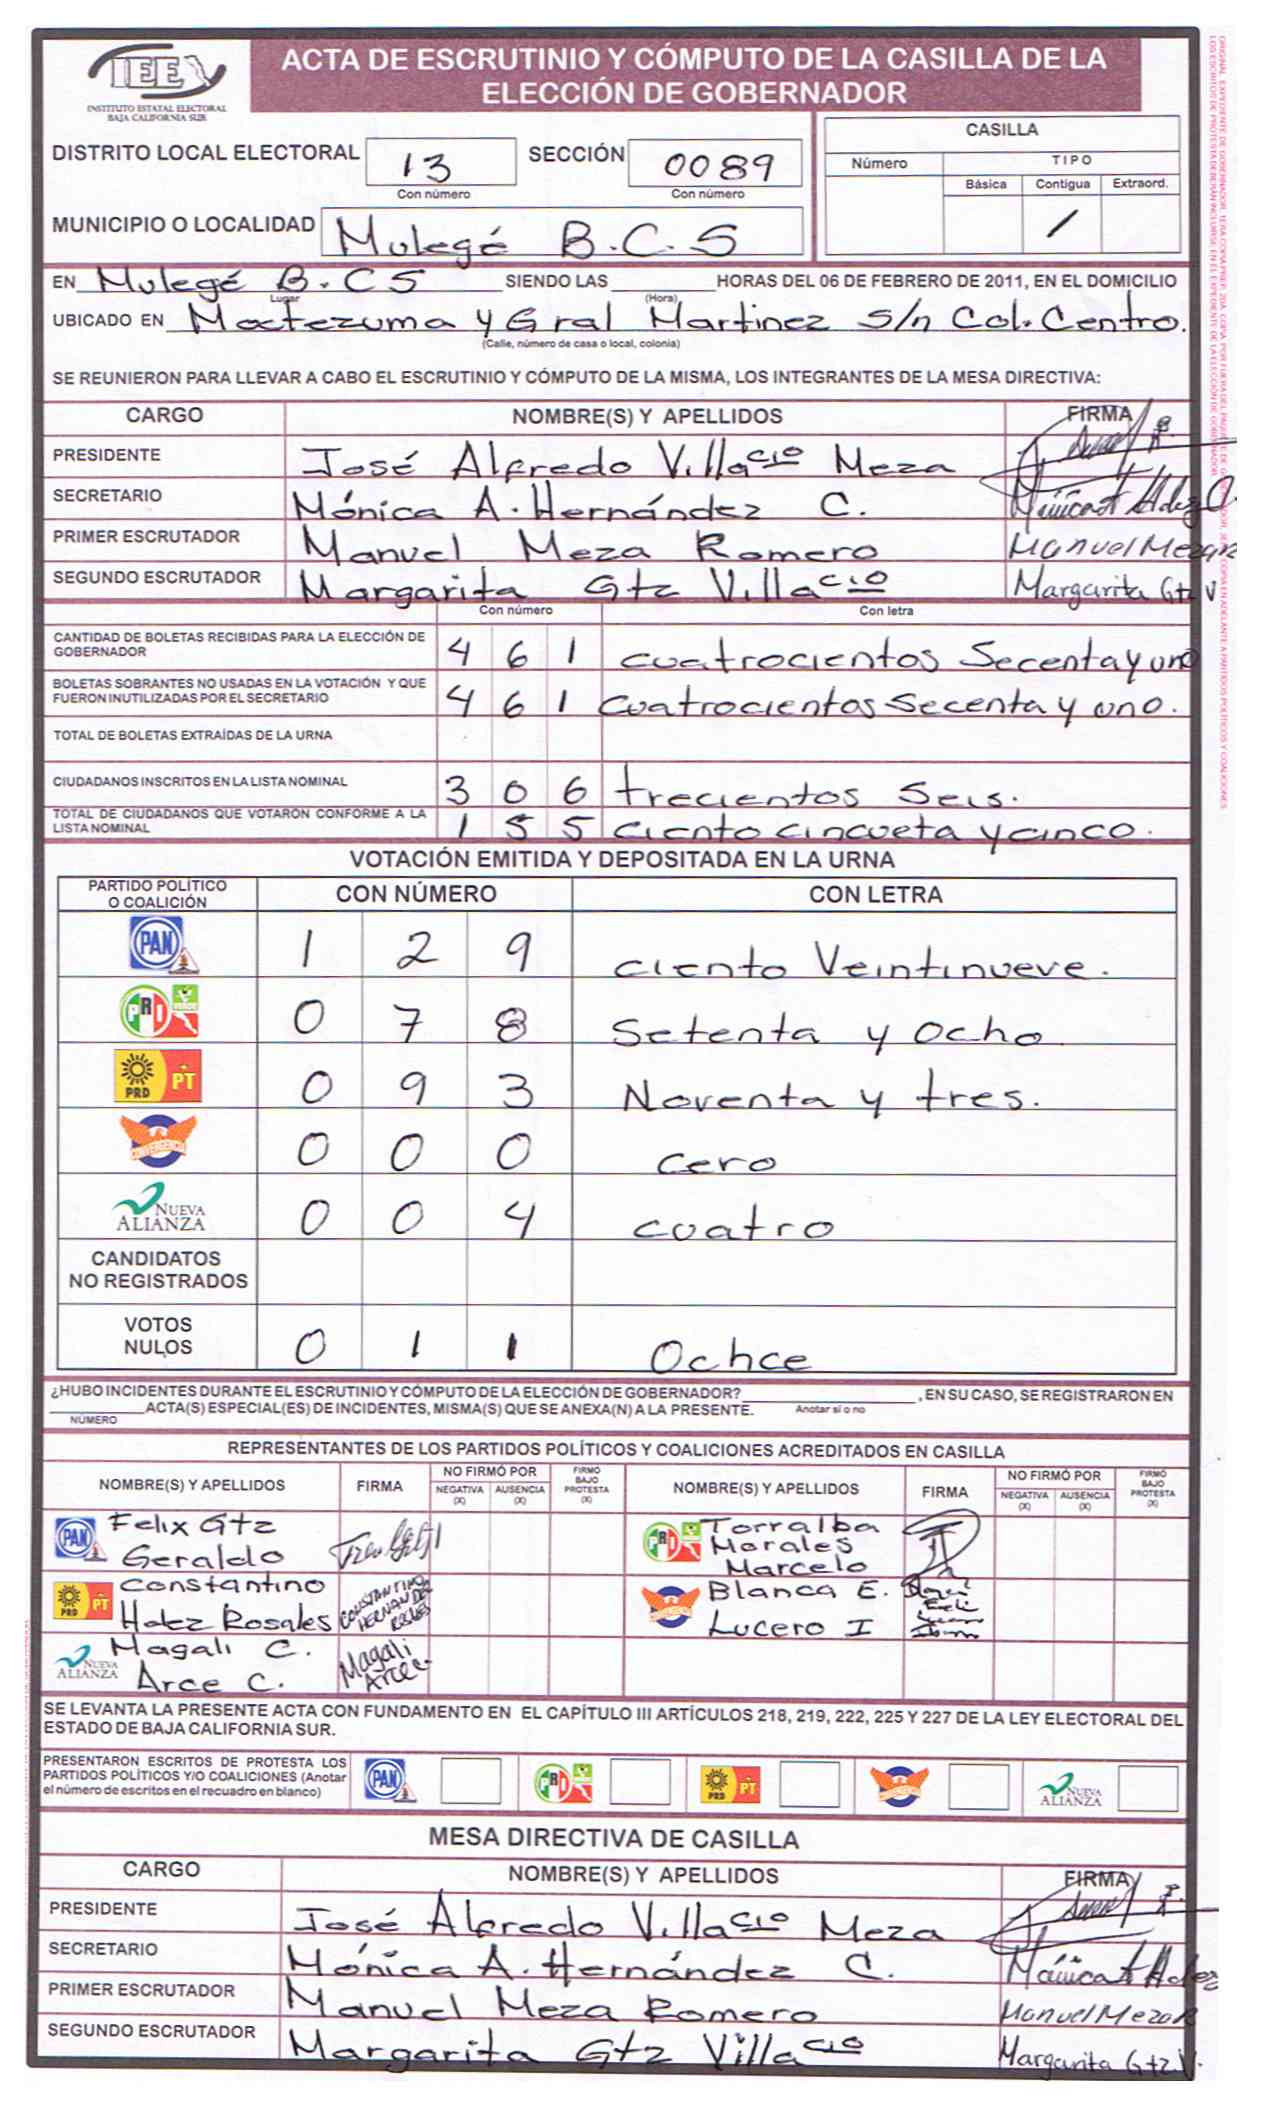 IEE
INSTITUTO ESTATAL ELECTORAL
BAJA CALIFORNIA SUR
ACTA DE ESCRUTINIO Y CÓMPUTO DE LA CASILLA DE LA
ELECCIÓN DE GOBERNADOR
DISTRITO LOCAL ELECTORAL 13 SECCIÓN 0089
Con número Con número
MUNICIPIO O LOCALIDAD Mulegé B.C.S
CASILLA
Número TIPO
Básica Contigua Extraord.
/
EN Mulegé B.CS SIENDO LAS HORAS DEL 06 DE FEBRERO DE 2011, EN EL DOMICILIO
Lugar (Hora)
UBICADO EN Moctezuma y Gral Martinez s/n Col. Centro.
(Calle, número de casa o local, colonia)
SE REUNIERON PARA LLEVAR A CABO EL ESCRUTINIO Y CÓMPUTO DE LA MISMA, LOS INTEGRANTES DE LA MESA DIRECTIVA:
CARGO NOMBRE(S) Y APELLIDOS FIRMA
PRESIDENTE José Alfredo Villacio Meza
SECRETARIO Mónica A. Hernández C.
PRIMER ESCRUTADOR Manuel Meza Romero Manuel Meza R
SEGUNDO ESCRUTADOR Margarita Gtz Villacio Margarita Gtz V
Con número Con letra
CANTIDAD DE BOLETAS RECIBIDAS PARA LA ELECCIÓN DE
GOBERNADOR 4 6 1 cuatrocientos Secenta y uno
BOLETAS SOBRANTES NO USADAS EN LA VOTACIÓN Y QUE
FUERON INUTILIZADAS POR EL SECRETARIO 4 6 1 cuatrocientos Secenta y uno.
TOTAL DE BOLETAS EXTRAÍDAS DE LA URNA
CIUDADANOS INSCRITOS EN LA LISTA NOMINAL 3 0 6 trecientos Seis.
TOTAL DE CIUDADANOS QUE VOTARÓN CONFORME A LA
LISTA NOMINAL 1 5 5 ciento cincueta y cinco.
VOTACIÓN EMITIDA Y DEPOSITADA EN LA URNA
PARTIDO POLÍTICO
O COALICIÓN CON NÚMERO CON LETRA
PAN 1 2 9 ciento Veintinueve.
PRI 0 7 8 Setenta y Ocho
PRD PT 0 9 3 Noventa y tres.
CONVERGENCIA 0 0 0 cero
NUEVA ALIANZA 0 0 4 cuatro
CANDIDATOS
NO REGISTRADOS
VOTOS
NULOS 0 1 1 Ochce
¿HUBO INCIDENTES DURANTE EL ESCRUTINIO Y CÓMPUTO DE LA ELECCIÓN DE GOBERNADOR? , EN SU CASO, SE REGISTRARON EN
ACTA(S) ESPECIAL(ES) DE INCIDENTES, MISMA(S) QUE SE ANEXA(N) A LA PRESENTE. Anotar sí o no
NÚMERO
REPRESENTANTES DE LOS PARTIDOS POLÍTICOS Y COALICIONES ACREDITADOS EN CASILLA
NOMBRE(S) Y APELLIDOS FIRMA NO FIRMÓ POR NEGATIVA (X) AUSENCIA (X) FIRMÓ BAJO PROTESTA (X) NOMBRE(S) Y APELLIDOS FIRMA NO FIRMÓ POR NEGATIVA (X) AUSENCIA (X) FIRMÓ BAJO PROTESTA (X)
PAN Felix Gtz
Geraldo
PRI Torralba
Morales
Marcelo
PRD PT Constantino
Hdez Rosales
CONSTANTINO
HERNANDEZ
ROSALES
CONVERGENCIA Blanca E.
Lucero I
NUEVA ALIANZA Magali C.
Arce C.
Magali
Arce C.
SE LEVANTA LA PRESENTE ACTA CON FUNDAMENTO EN EL CAPÍTULO III ARTÍCULOS 218, 219, 222, 225 Y 227 DE LA LEY ELECTORAL DEL
ESTADO DE BAJA CALIFORNIA SUR.
PRESENTARON ESCRITOS DE PROTESTA LOS
PARTIDOS POLÍTICOS Y/O COALICIONES (Anotar
el número de escritos en el recuadro en blanco)
PAN PRI PRD PT CONVERGENCIA NUEVA ALIANZA
MESA DIRECTIVA DE CASILLA
CARGO NOMBRE(S) Y APELLIDOS FIRMA
PRESIDENTE José Alfredo Villacio Meza
SECRETARIO Mónica A. Hernández C.
PRIMER ESCRUTADOR Manuel Meza Romero Manuel Meza R
SEGUNDO ESCRUTADOR Margarita Gtz Villacio Margarita Gtz V.